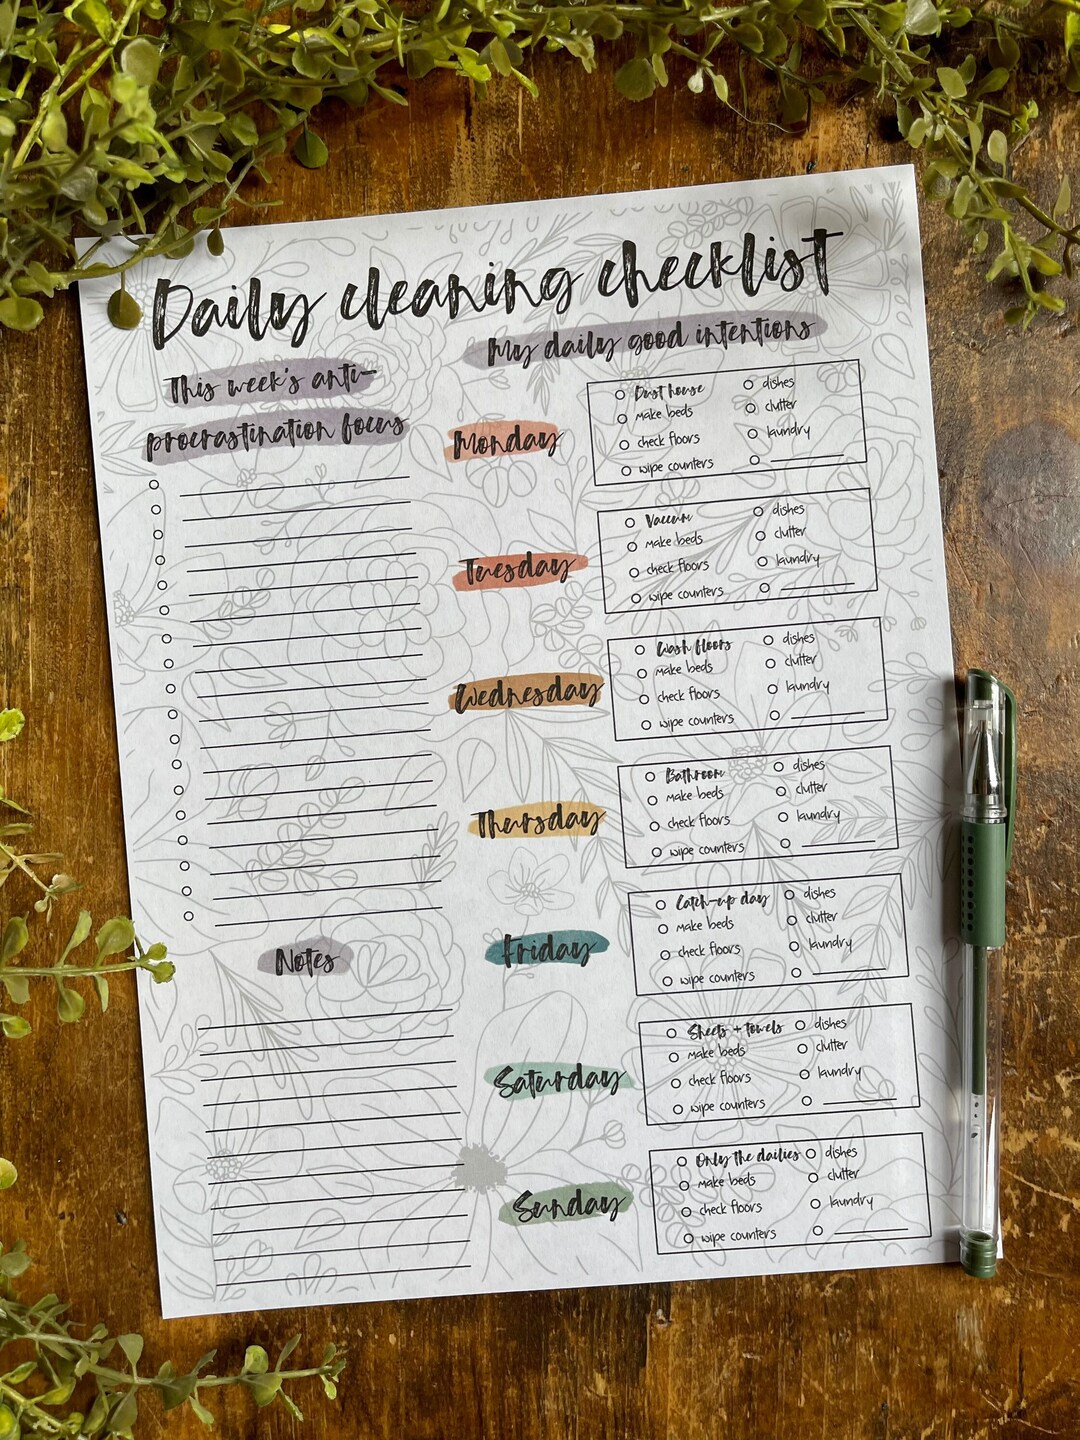 Daily cleaning checklist
This week's anti-
procrastination focus
Notes
My daily good intentions
Monday
Dust house
make beds
check floors
wipe counters
dishes
clutter
laundry
Tuesday
Vaccum
make beds
check floors
wipe counters
dishes
clutter
laundry
Wednesday
Wash floors
make beds
check floors
wipe counters
dishes
clutter
laundry
Thursday
Bathroom
make beds
check floors
wipe counters
dishes
clutter
laundry
Friday
Catch-up day
make beds
check floors
wipe counters
dishes
clutter
laundry
Saturday
Sheets + towels
make beds
check floors
wipe counters
dishes
clutter
laundry
Sunday
Only the dailies
make beds
check floors
wipe counters
dishes
clutter
laundry